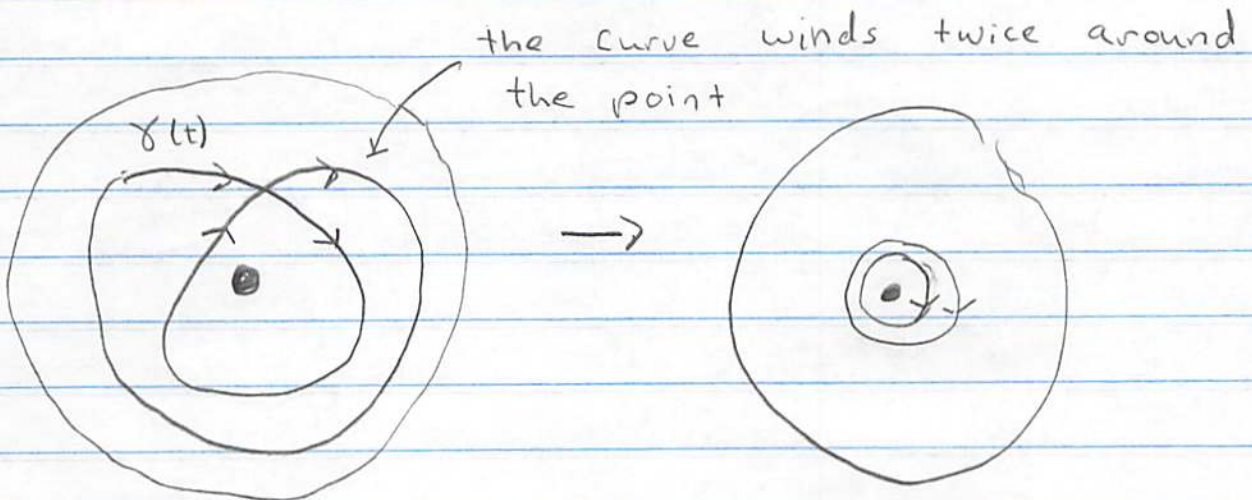 the curve winds twice around
the point
γ(t)